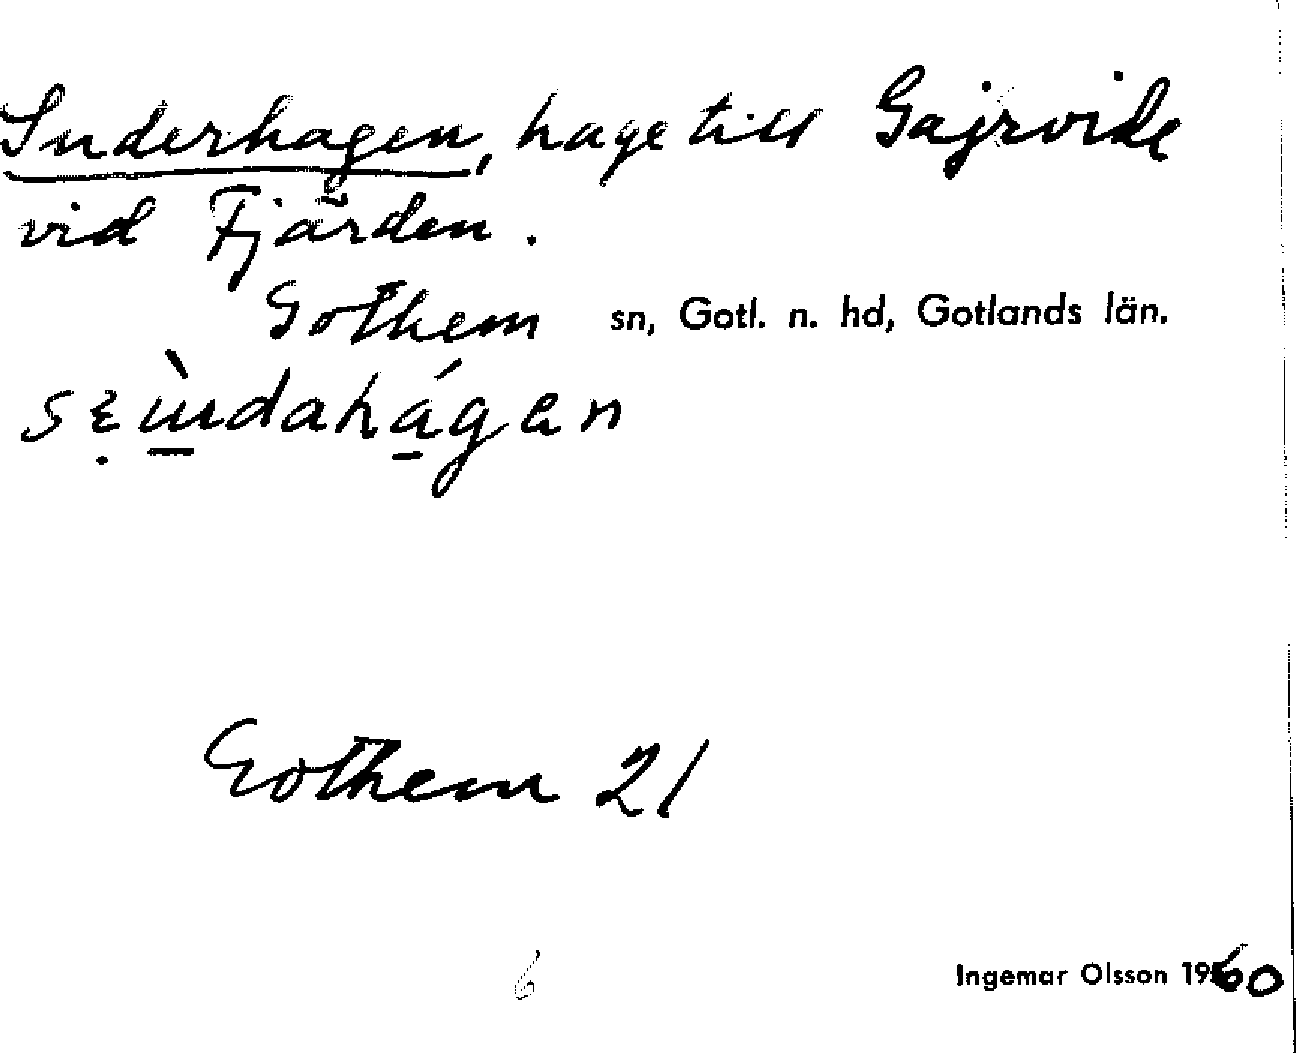 Suderhagen, hage till Gajrvide
vid Fjärden.
Gothem sn, Gotl. n. hd, Gotlands län.
Gothem 21
6
Ingemar Olsson 1960